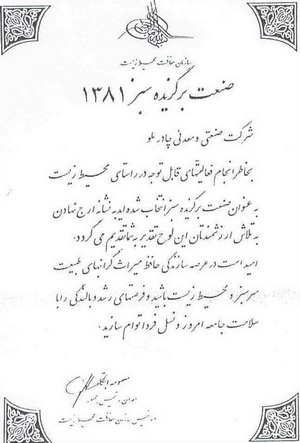 سازمان حفاظت محیط زیست
صنعت برگزیده سبز ۱۳۸۱
شرکت صنعتی و معدنی چادر ملو
بخاطر انجام فعالیتهای قابل توجه در راستای محیط زیست
به عنوان صنعت برگزیده سبز انتخاب شده اید به نشانه ارج نهادن
به تلاش ارزشمندتان این لوح تقدیر به شما تقدیم می گردد.
امید است در عرصه سازندگی حافظ میراث گرانبهای طبیعت
سرسبز و محیط زیست باشید و فرصتهای رشد و بالندگی را با
سلامت جامعه امروز و نسل فردا توام سازید.
معصومه ابتکار
معاون رئیس جمهور
و رئیس سازمان حفاظت محیط زیست